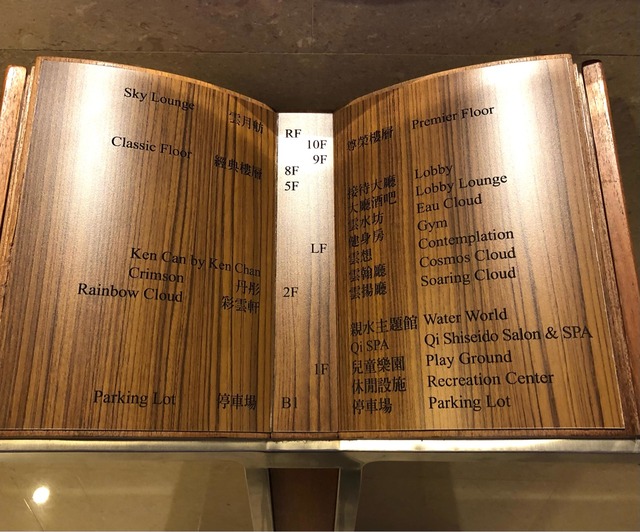 Sky Lounge 雲月舫
Classic Floor 經典樓層
Ken Can by Ken Chan
Crimson 丹彤
Rainbow Cloud 彩雲軒
Parking Lot 停車場
RF
10F
9F
8F
5F
LF
2F
1F
B1
尊榮樓層 Premier Floor
接待大廳 Lobby
大廳酒吧 Lobby Lounge
雲水坊 Eau Cloud
健身房 Gym
雲想 Contemplation
雲翰廳 Cosmos Cloud
雲揚廳 Soaring Cloud
親水主題館 Water World
Qi SPA Qi Shiseido Salon & SPA
兒童樂園 Play Ground
休閒設施 Recreation Center
停車場 Parking Lot